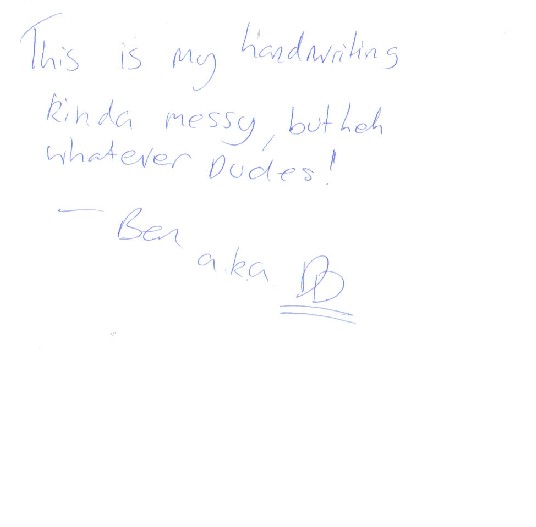 This is my handwriting
kinda messy, but heh
whatever Dudes!
— Ben
a.k.a DB